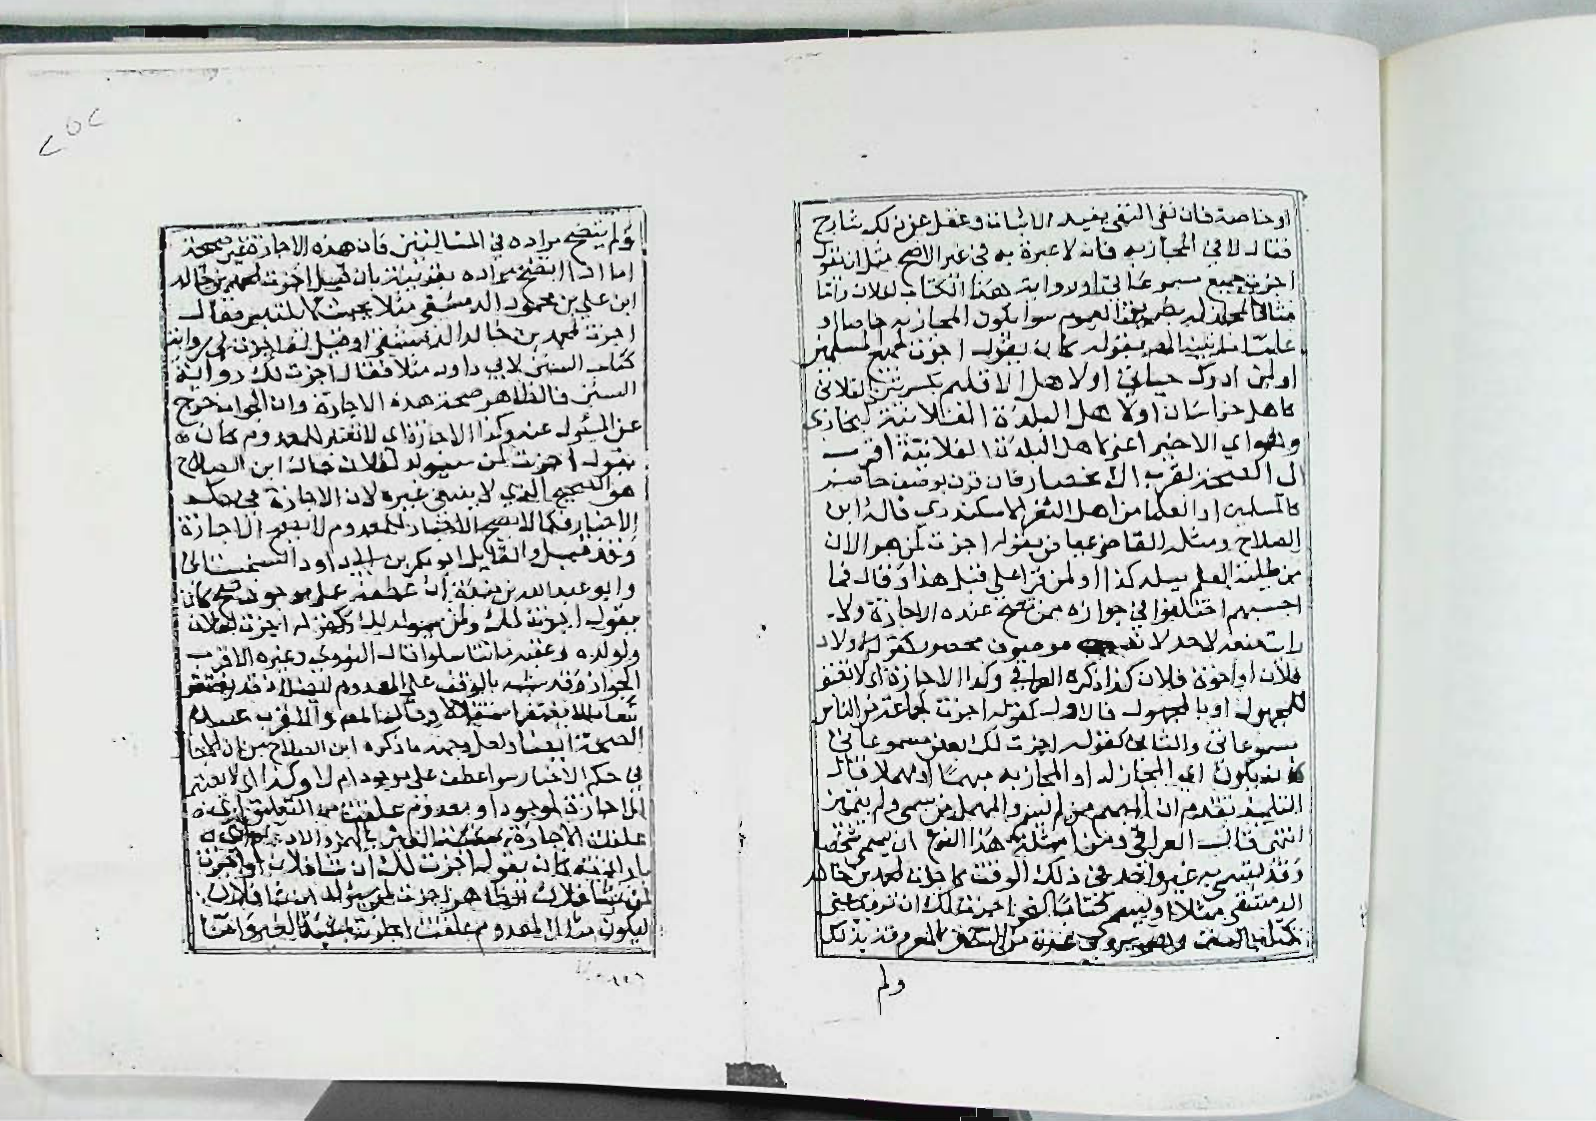 او خاصة فان نفى النفى يفيد الاثبات وغفل عن ذلك شارح
فقال لا في المجاز به فانه لا عبرة به في غير الاصح مثل ان تقول
اجزت جميع مسموعاتي او رواية هذا الكتاب لفلان
له بطريق العموم سوا يكون المجاز به خاصا او
بقوله كان يقول اجزت لجميع المسلمين
او لمن ادرك حياتي او لاهل الاقليم الفلاني
كاهل خراسان او لاهل البلدة الفلانية كبخارى
وهو اي الاخير اعني لاهل البلدة الفلانية اقرب
الى الصحة لقرب الانحصار فان قرن بوصف حاصر
كالمسلمين او العلما من اهل الثغر الاسكندري قاله ابن
الصلاح ومثله القاضي عياض بقوله اجزت لمن هو الان
من طلبة العلم ببلد كذا او لمن قرا علي قبل هذا وقال فما
احسبهم اختلفوا في جوازه ممن تصح عنده الاجازة ولا
رايت منعه لاحد لانه موصوف محصور كقوله لاولاد
فلان او اخوة فلان كذا ذكره العراقي وكذا الاجازة اي لا تعتبر
للمجهول او بالمجهول فالاول كقوله اجزت لجماعة من الناس
مسموعاتي والثاني كقوله اجزت لك بعض مسموعاتي
يكون اي المجاز له او المجاز به مبهما او مهملا قال
التلميذ تقدم ان المبهم من لم يسم والمهمل من سمي ولم يتميز
انتهى قال العراقي ومن امثلة هذا النوع ان يسمي شخصا
وقد تسمى به غير واحد في ذلك الوقت كاجزت لمحمد بن خالد
الدمشقي مثلا او يسمي كتابا كنحو اجزت لك ان تروي عني
كتاب السنن وهو يروي عدة من السنن المعروفة بذلك
ولم
٢٥٢
ولم يتضح مراده في المسالتين فان هذه الاجازة غير صحيحة
اما اذا اتضح مراده بقرينة بان قيل اجزت لمحمد بن خالد
ابن علي بن محمود الدمشقي مثلا بحيث لا يلتبس فقال
اجزت لمحمد بن خالد الدمشقي او قيل له اجزت لي رواية
كتاب السنن لابي داود مثلا فقال اجزت لك رواية
السنن فالظاهر صحة هذه الاجازة وان الجواب خرج
عن المسئول عنه وكذا الاجازة اي لا تعتبر للمعدوم كان
يقول اجزت لمن سيولد لفلان قال ابن الصلاح
هو الصحيح الذي لا ينبغي غيره لان الاجازة في حكم
الاخبار فكما لا يصح الاخبار للمعدوم لا يصح الاجازة
وقد قيل والقايل ابو بكر بن ابي داود السجستاني
وابو عبد الله بن منده ان عطفه على موجود صح كان
يقول اجزت لك ولمن سيولد لك وكقوله اجزت لفلان
ولولده وعقبه ما تناسلوا قال النووي وغيره الاقرب
الجواز وقد شبه بالوقف على المعدوم وقد يغتفر
تبعا ما لا يغتفر استقلالا والاقرب عدم
الصحة ايضا ولعل وجهه ما ذكره ابن الصلاح من ان الاجازة
في حكم الاخبار سوا عطف على موجود ام لا وكذا اي لا تعتبر
الاجازة لموجود او معدوم علقت من التعليق
علقت الاجازة بمشية الغير
كان يقول اجزت لك ان شا فلان او اجزت
لمن شا فلان اجزت لمن سيولد ان شا فلان
ليكون مثال المعدوم علقت اجازته بمشية الغير وامّا